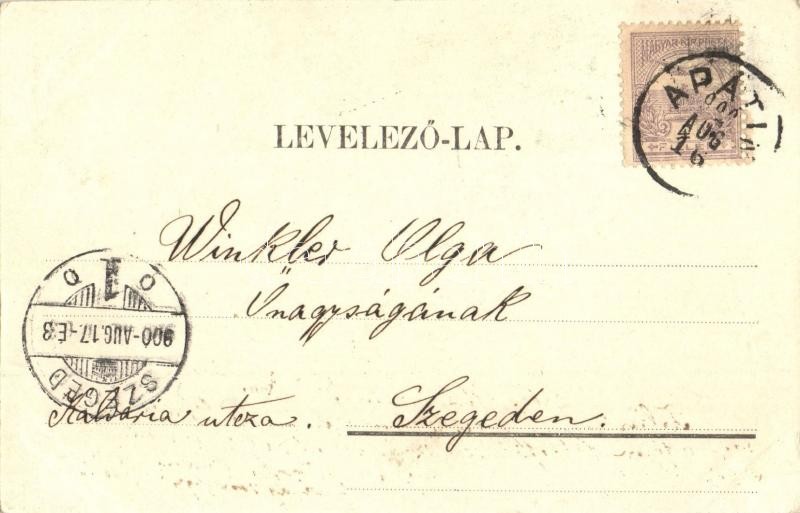 MAGYAR KIR. POSTA
APATI
900
AUG
16
LEVELEZŐ-LAP.
Winkler Olga
Őnagyságának
Kálvária utcza. Szegeden.
1
900-AUG.17-É8
SZEGED